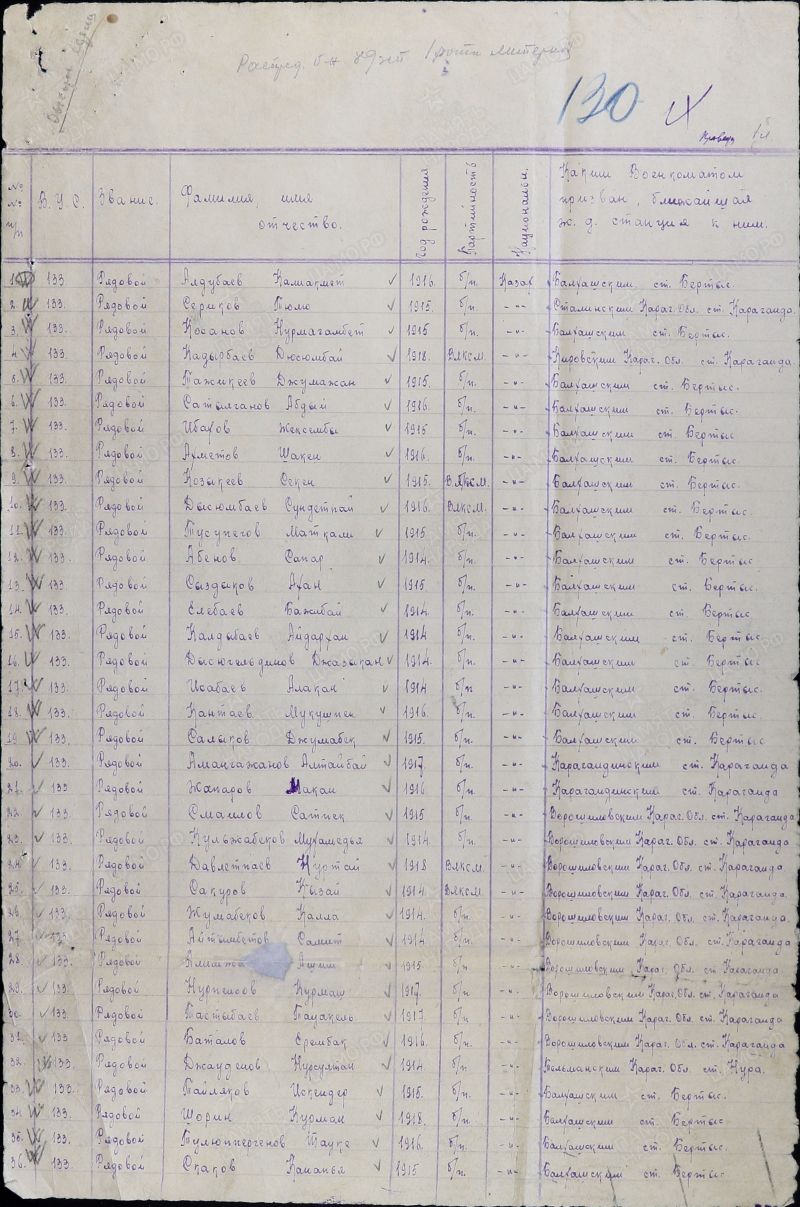 Распред. б-н 89 зсп 1 рота литерная
130
№№ п/п В.У.С. Звание. Фамилия, имя отчество. Год рождения Партийность Национальн. Каким Военкоматом призван, ближайшая ж.д. станция к ним.
1. 133 Рядовой Алдубаев Калиакмет 1916. б/п. Казах Балхашским. ст. Бертыс.
2. 133. Рядовой Сериков Тюлю 1915. б/п. -"- Сталинским Караг. Обл. ст. Караганда.
3. 133. Рядовой Косанов Нурмагамбет 1915 б/п. -"- Балхашским ст. Бертыс.
4. 133. Рядовой Кадырбаев Дюсюмбай 1918. ВЛКСМ. -"- Кировским Караг. Обл. ст. Караганда.
5. 133. Рядовой Тажикеев Джумажан 1915. б/п. -"- Балхашским ст. Бертыс.
6. 133. Рядовой Сатылганов Абдый 1916. б/п. -"- Балхашским ст. Бертыс.
7. 133. Рядовой Ибахов Жексембы 1915 б/п. -"- Балхашским ст. Бертыс.
8. 133. Рядовой Ахметов Шакен 1916. б/п. -"- Балхашским ст. Бертыс.
9. 133. Рядовой Козыкеев Оскен 1915. ВЛКСМ. -"- Балхашским ст. Бертыс.
10. 133. Рядовой Дысюмбаев Сундетпай 1916. ВЛКСМ. -"- Балхашским ст. Бертыс.
11. 133. Рядовой Тусупегов Маткали 1915. б/п. -"- Балхашским ст. Бертыс.
12. 133. Рядовой Абенов Сапар 1914. б/п. -"- Балхашским ст. Бертыс
13. 133. Рядовой Сыздыков Ахан 1915. б/п. -"- Балхашским ст. Бертыс.
14. 133. Рядовой Елебаев Бажибай 1914 б/п. -"- Балхашским ст. Бертыс
15. 133. Рядовой Калдыбаев Айдархан 1914 б/п. -"- Балхашским ст. Бертыс.
16. 133. Рядовой Дысюгельдинов Джазыкан 1914. б/п. -"- Балхашским ст. Бертыс.
17. 133. Рядовой Исабаев Алакан 1914 б/п. -"- Балхашским ст. Бертыс.
18. 133. Рядовой Кантаев Мукушпек 1916. б/п. -"- Балхашским ст. Бертыс.
19. 133. Рядовой Салыков Джумабек 1915. б/п. -"- Балхашским ст. Бертыс
20. 133. Рядовой Амангажанов Алтайбай 1917 б/п. -"- Карагандинским ст. Караганда
21. 133 Рядовой Жапаров Макан 1916 б/п. -"- Карагандинский ст. Караганда
22. 133. Рядовой Смаилов Сатпек 1915 б/п. -"- Ворошиловским Караг. Обл. ст. Караганда
23. 133. Рядовой Кульжабеков Мухамедья 1914. б/п. -"- Ворошиловским Караг. Обл. ст. Караганда
24. 133. Рядовой Давлетпаев Нуртай 1918 ВЛКСМ. -"- Ворошиловским Караг. Обл. ст. Караганда
25. 133. Рядовой Сакуров Кызай 1914. ВЛКСМ. -"- Ворошиловским Караг. Обл. ст. Караганда
26. 133. Рядовой Жумабеков Калла 1914. б/п. -"- Ворошиловским Караг. Обл. ст. Караганда.
27. 133. Рядовой Айтымбетов Самит 1914 б/п. -"- Ворошиловским Караг. Обл. ст. Караганда
28. 133. Рядовой Ашим 1915 б/п. -"- Ворошиловским Караг. Обл. ст. Караганда
29. 133. Рядовой Нурпеисов Курмаш 1917. б/п -"- Ворошиловским Караг. Обл. ст. Караганда
30. 133. Рядовой Тастыбаев Тауакель 1917. б/п. -"- Ворошиловским Караг. Обл. ст. Караганда
31. 133. Рядовой Баталов Ерембак 1916. б/п. -"- Ворошиловским Караг. Обл. ст. Караганда
32. 133. Рядовой Джауденов Нурсултан 1914 б/п. -"- Тельманским Караг. Обл. ст. Нура.
33. 133. Рядовой Тайляков Искендер 1915. б/п. -"- Балхашским ст. Бертыс.
34. 133. Рядовой Шорин Курман 1918. б/п. -"- Балхашским ст. Бертыс.
35. 133. Рядовой Тулюпергенов Шауке 1916. б/п. -"- Балхашским ст. Бертыс.
36. 133 Рядовой Скаков Капапья 1915 б/п. -"- Балхашский ст. Бертыс.